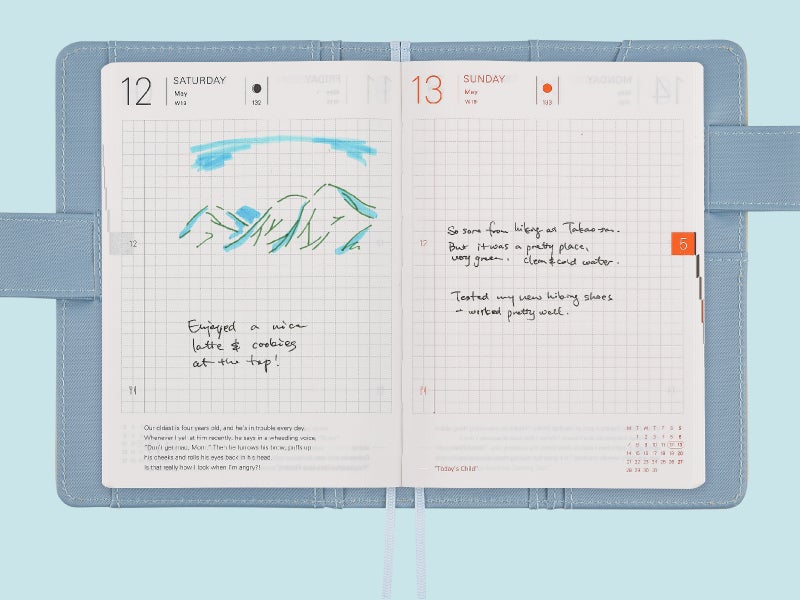 12
SATURDAY
May
W19
132
12
Enjoyed a nice
latte & cookies
at the top!
Our oldest is four years old, and he's in trouble every day.
Whenever I yell at him recently, he says in a wheedling voice,
"Don't get mad, Mom." Then he furrows his brow, puffs up
his cheeks and rolls his eyes back in his head.
Is that really how I look when I'm angry?!
13
SUNDAY
May
W19
133
So sore from hiking at Takao-san.
But it was a pretty place,
very green. clean & cold water.
12
5
Tested my new hiking shoes
– worked pretty well.
"Today's Child"
M T W T F S S
1 2 3 4 5 6
7 8 9 10 11 12 13
14 15 16 17 18 19 20
21 22 23 24 25 26 27
28 29 30 31